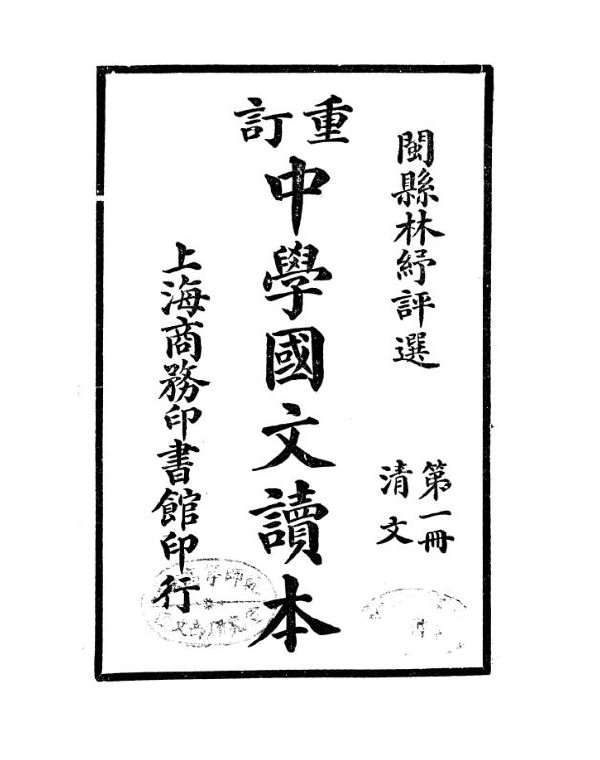 閩縣林紓評選
第一冊
清文
重訂
中學國文讀本
上海商務印書館印行